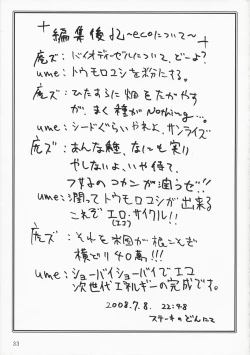 編集後記 ~ecoについて~
庵ズ:バイオディーゼルについて、どーよ?
ume:トウモロコシを粉にする。
庵ズ:ひたすらに畑をたがやす
が、まく種がNothing…。
ume:シードぐらいやれよ、サンライズ
庵ズ:あんな種、なにも実り
やしないよ、いや待て、
フサ子のコカンが潤うぜ!!
ume:潤ってトウモロコシが出来る
これぞエロ・サイクル!!
(エコ)
庵ズ:それを米国が根こそぎ
横どり40萬!!!
ume:ショーバイショーバイでエコ
次世代エネルギーの完成です。
2008.7.8. 22:48
ステーキのどんにて
33